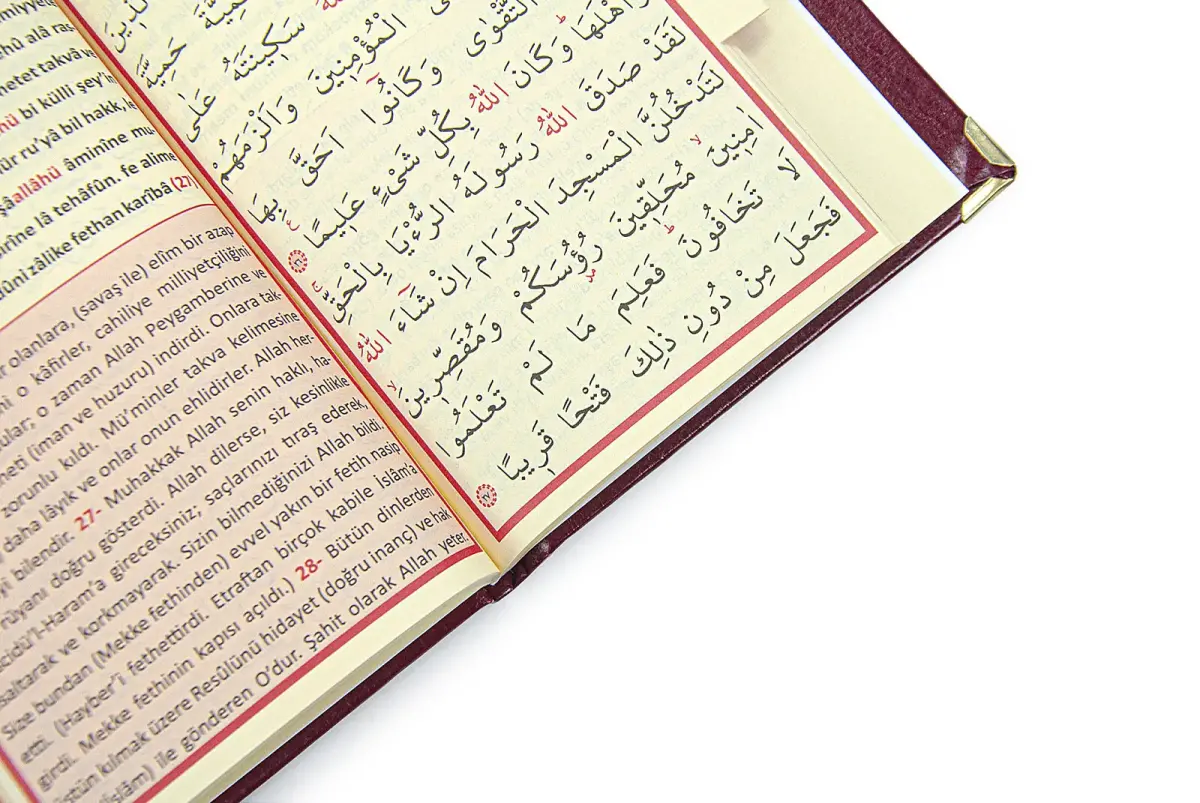 حَمِيَّةَ
سَكِينَتَهُ عَلٰى
الْمُؤْمِنِينَ وَاَلْزَمَهُمْ
التَّقْوٰى وَكَانُٓوا اَحَقَّ بِهَا
وَاَهْلَهَا وَكَانَ اللّٰهُ بِكُلِّ شَىْءٍ عَلِيمًا ٢٦
لَقَدْ صَدَقَ اللّٰهُ رَسُولَهُ الرُّءْيَا بِالْحَقِّ
لَتَدْخُلُنَّ الْمَسْجِدَ الْحَرَامَ اِنْ شَٓاءَ اللّٰهُ
اٰمِنِينَ مُحَلِّقِينَ رُؤُسَكُمْ وَمُقَصِّرِينَ
لَا تَخَافُونَ فَعَلِمَ مَا لَمْ تَعْلَمُوا
فَجَعَلَ مِنْ دُونِ ذٰلِكَ فَتْحًا قَرِيبًا ٢٧
hû alâ
takvâ
bi külli şey'in
ru'yâ bil hakk,
allâhü âminîne
lâ tehâfûn. fe alime
zâlike fethan karîbâ (27)
olanlara, (savaş ile) elîm bir azap
o kâfirler, cahiliye milliyetçiliğini
o zaman Allah Peygamberine ve
(iman ve huzuru) indirdi. Onlara tak-
zorunlu kıldı. Mü'minler takva kelimesine
daha lâyık ve onlar onun ehlidirler. Allah her-
bilendir. 27- Muhakkak Allah senin haklı, ha-
rüyanı doğru gösterdi. Allah dilerse, siz kesinlikle
Haram'a gireceksiniz; saçlarınızı tıraş ederek,
ve korkmayarak. Sizin bilmediğinizi Allah bildi.
Size bundan (Mekke fethinden) evvel yakın bir fetih nasip
etti. (Hayber'i fethettirdi. Etraftan birçok kabile İslâm'a
girdi. Mekke fethinin kapısı açıldı.) 28- Bütün dinlerden
üstün kılmak üzere Resûlünü hidayet (doğru inanç) ve hak
(İslâm) ile gönderen O'dur. Şahit olarak Allah yeter.